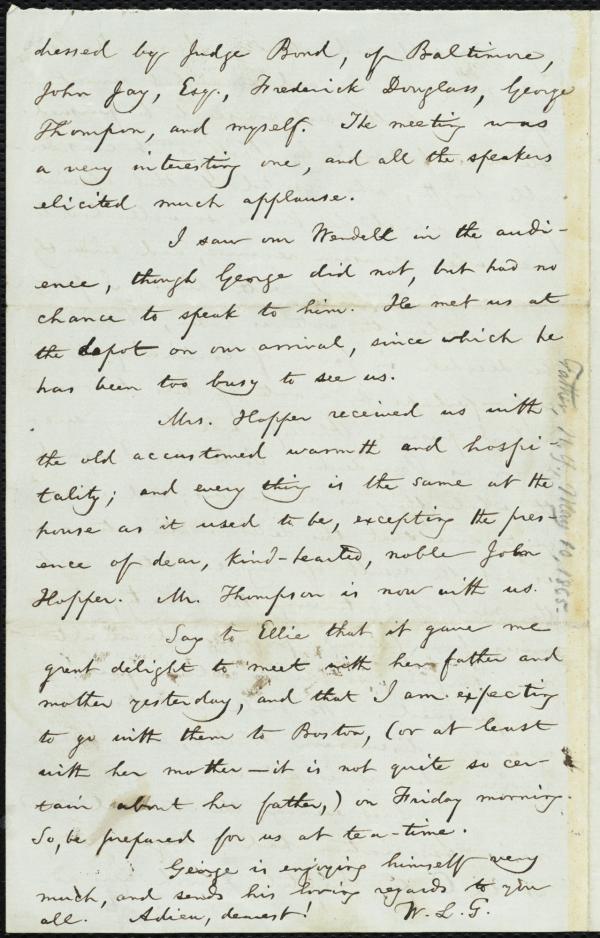 dressed by Judge Bond, of Baltimore,
John Jay, Esq., Frederick Douglass, George
Thompson, and myself. The meeting was
a very interesting one, and all the speakers
elicited much applause.
I saw our Wendell in the audi-
ence, though George did not, but had no
chance to speak to him. He met us at
the depot on our arrival, since which he
has been too busy to see us.
Mrs. Hopper received us with
the old accustomed warmth and hospi-
tality; and every thing is the same at the
house as it used to be, excepting the pres-
ence of dear, kind-hearted, noble John
Hopper. Mr. Thompson is now with us.
Say to Ellie that it gave me
great delight to meet with her father and
mother yesterday, and that I am expecting
to go with them to Boston, (or at least
with her mother—it is not quite so cer-
tain about her father,) on Friday morning.
So, be prepared for us at tea-time.
George is enjoying himself very
much, and sends his loving regards to you
all. Adieu, dearest! W. L. G.
Father, N.Y., May 10, 1865.